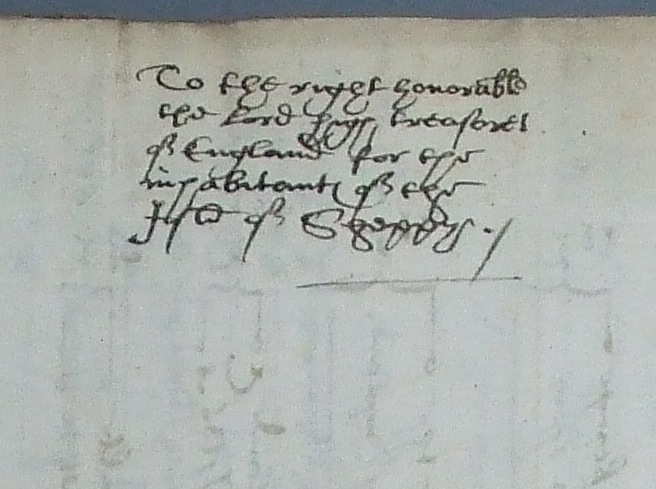 To the right honorable
the Lord highe treasorer
of England for the
inhabitants of the
Isle of Sheppey ./